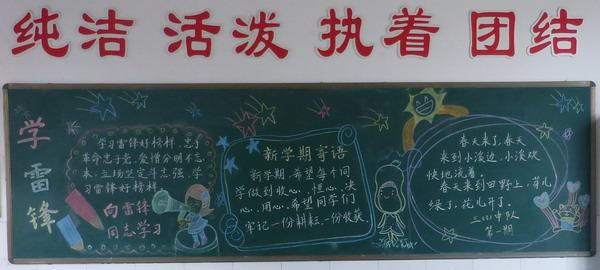 纯洁 活泼 执着 团结
学雷锋
学习雷锋好榜样，忠于
革命忠于党，爱憎分明不忘
本，立场坚定斗志强，学
习雷锋好榜样
向雷锋
同志学习
新学期寄语
新学期，希望每个同
学做到收心、恒心、决
心、用心。希望同学们
牢记一份耕耘，一份收获。
春天来了，春天
来到小溪边，小溪欢
快地流着。
春天来到田野上，草儿
绿了，花儿开了。
三(1)中队
第一期